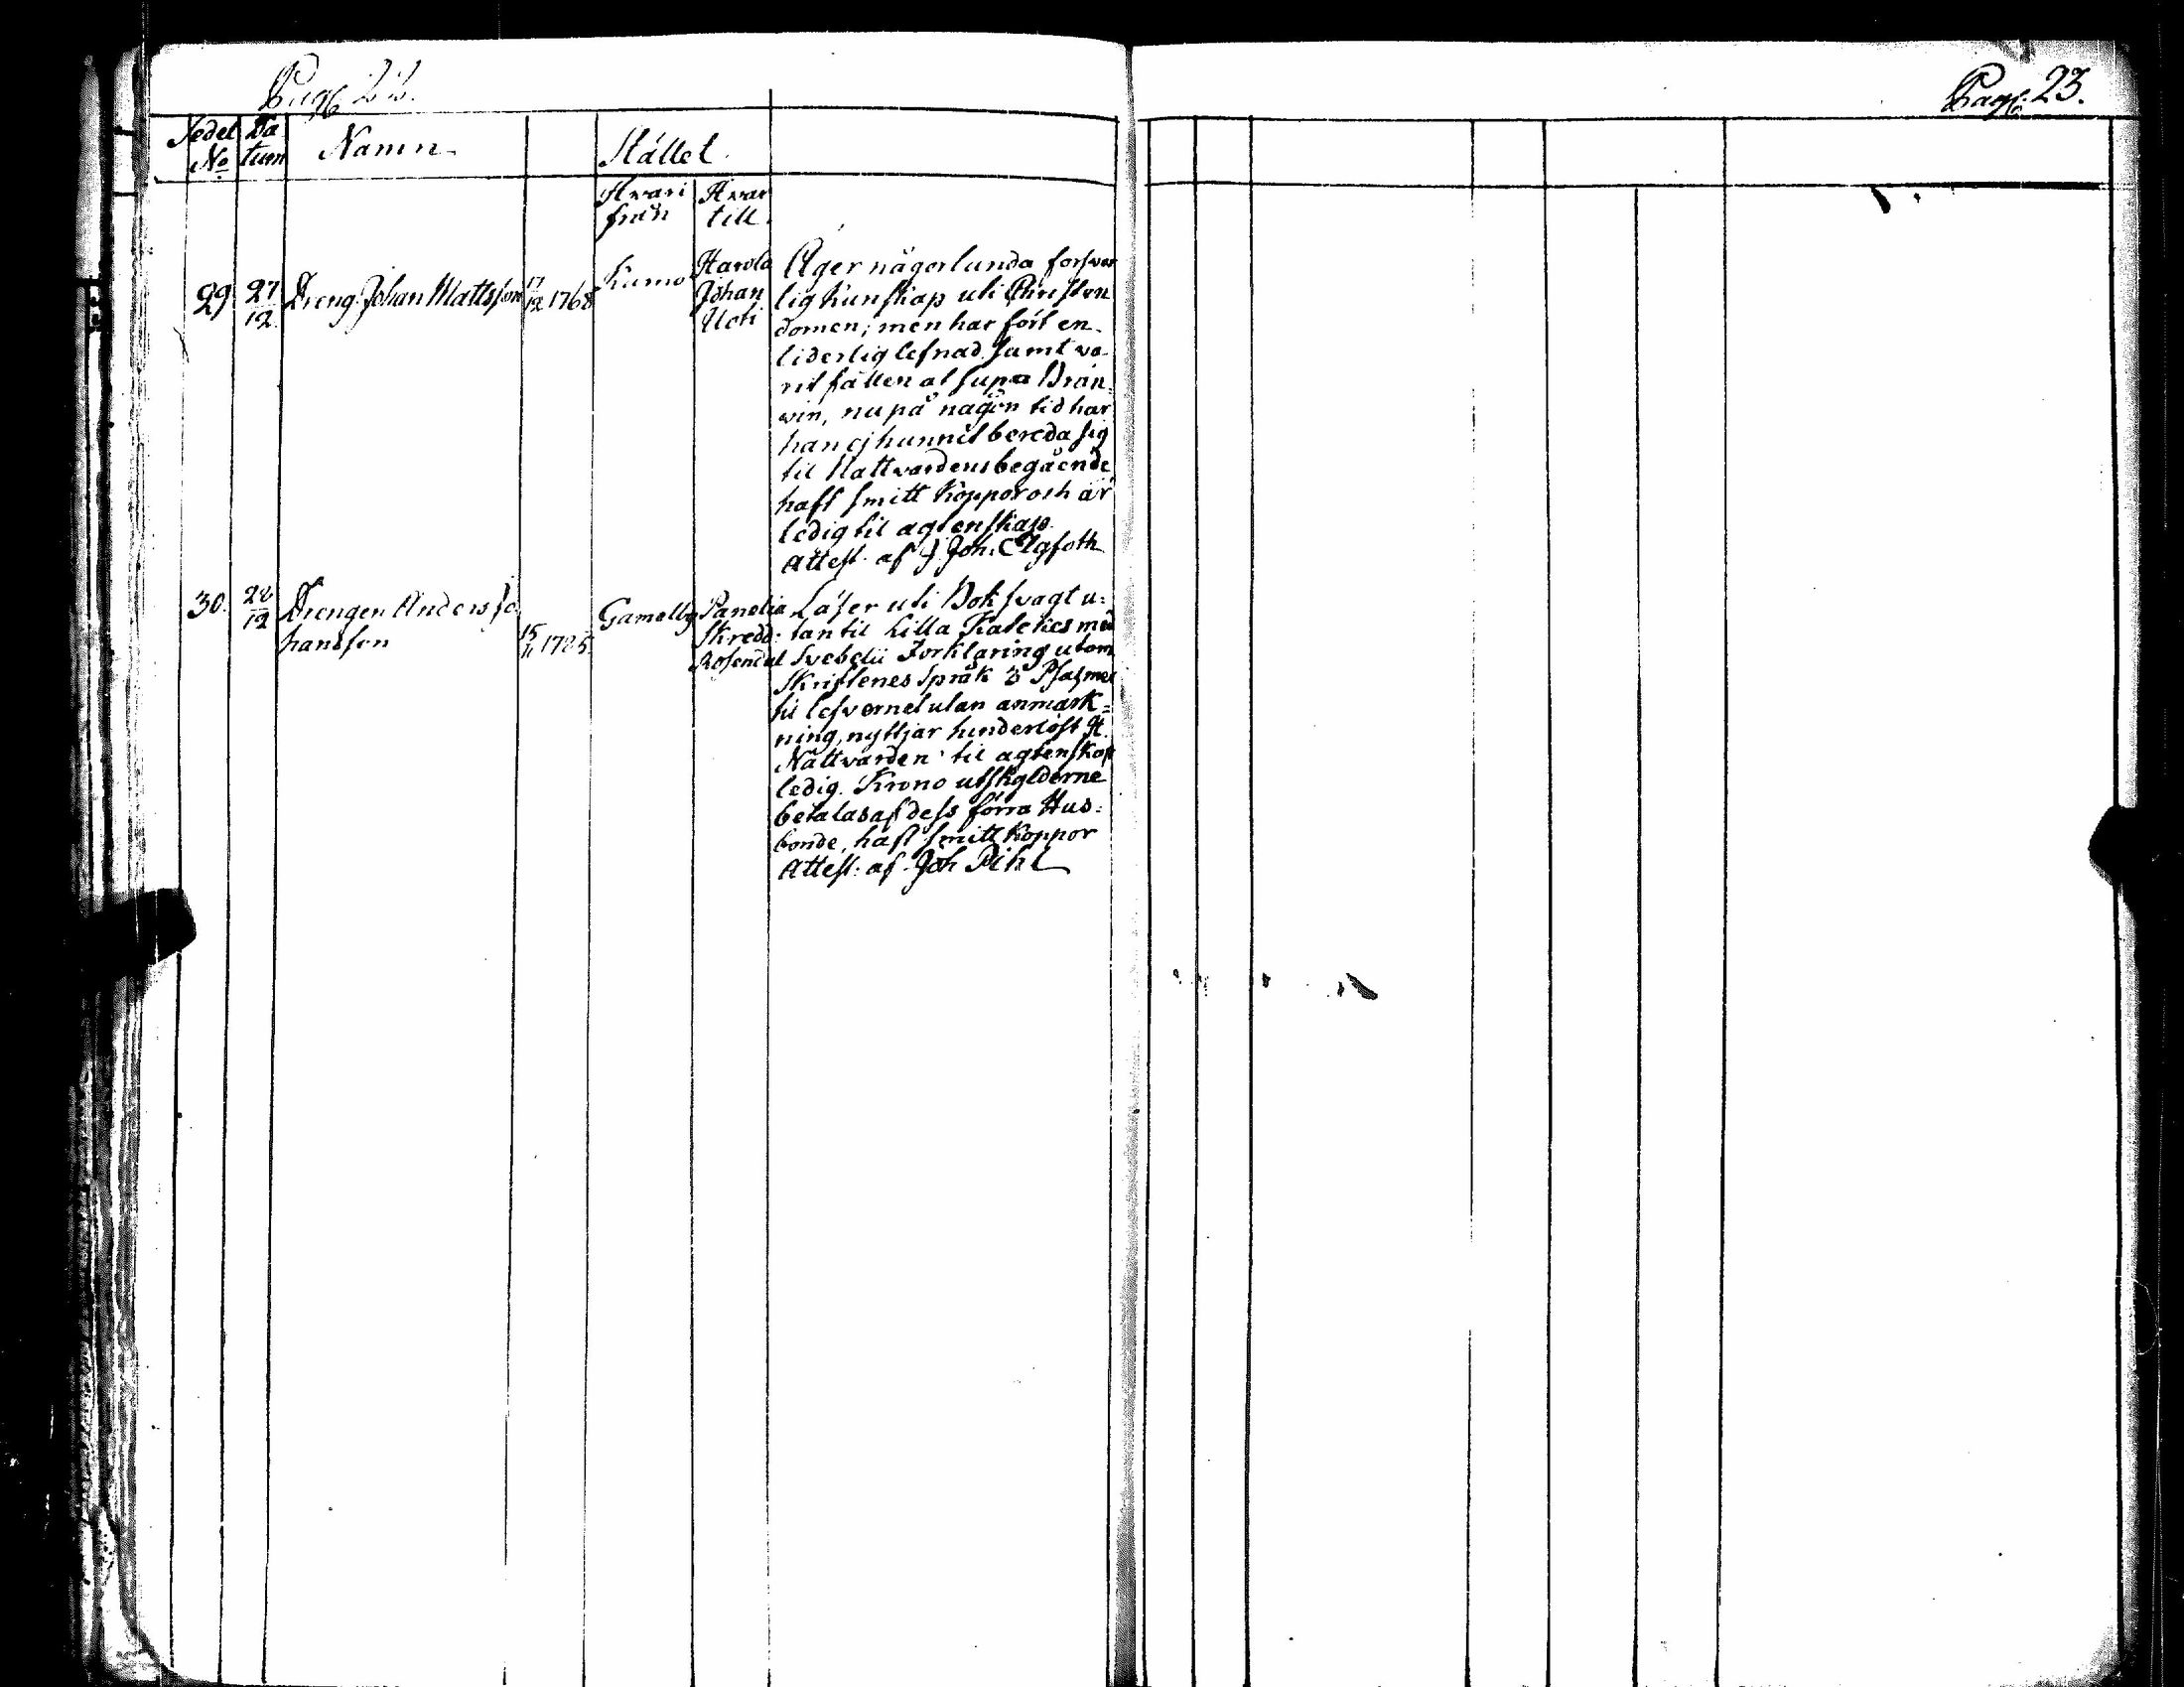 Pag: 22.
Pag: 23.
Sedel No Datum Namn Stället
Hvari från Hvar till
29. 27/12 Dreng Johan Mattsson 17/12 1768 Kumo Harola Johan Uoti
Äger någorlunda forsvar
lig kunskap uti Christen
domen; men har fört en
liderlig lefnad samt va
rit fallen at supa Brän
win, nu på någon tid har
han ej hunnit bereda sig
til Nattvardens begående
haft smitt koppor och är
ledig til agtenskap.
Attest. af J Joh.
30. 28/12 Drengen Anders Jo
hansson 1785. Gamelby Panelia Skredd: Rosendal
Läser uti Bok svagt u:
tan til Lilla Kateches med
Svebelii Forklaring utom
Skriftenes Språk 3 Psalmer
til lefvernet utan anmärk=
ning, nyttjar hinderlöst H.
Nattvarden til agtenskap
ledig. Krono utskylderne
betalas af dess förra Hus=
bonde, haft smitt koppor
Attest: af Joh Pihl